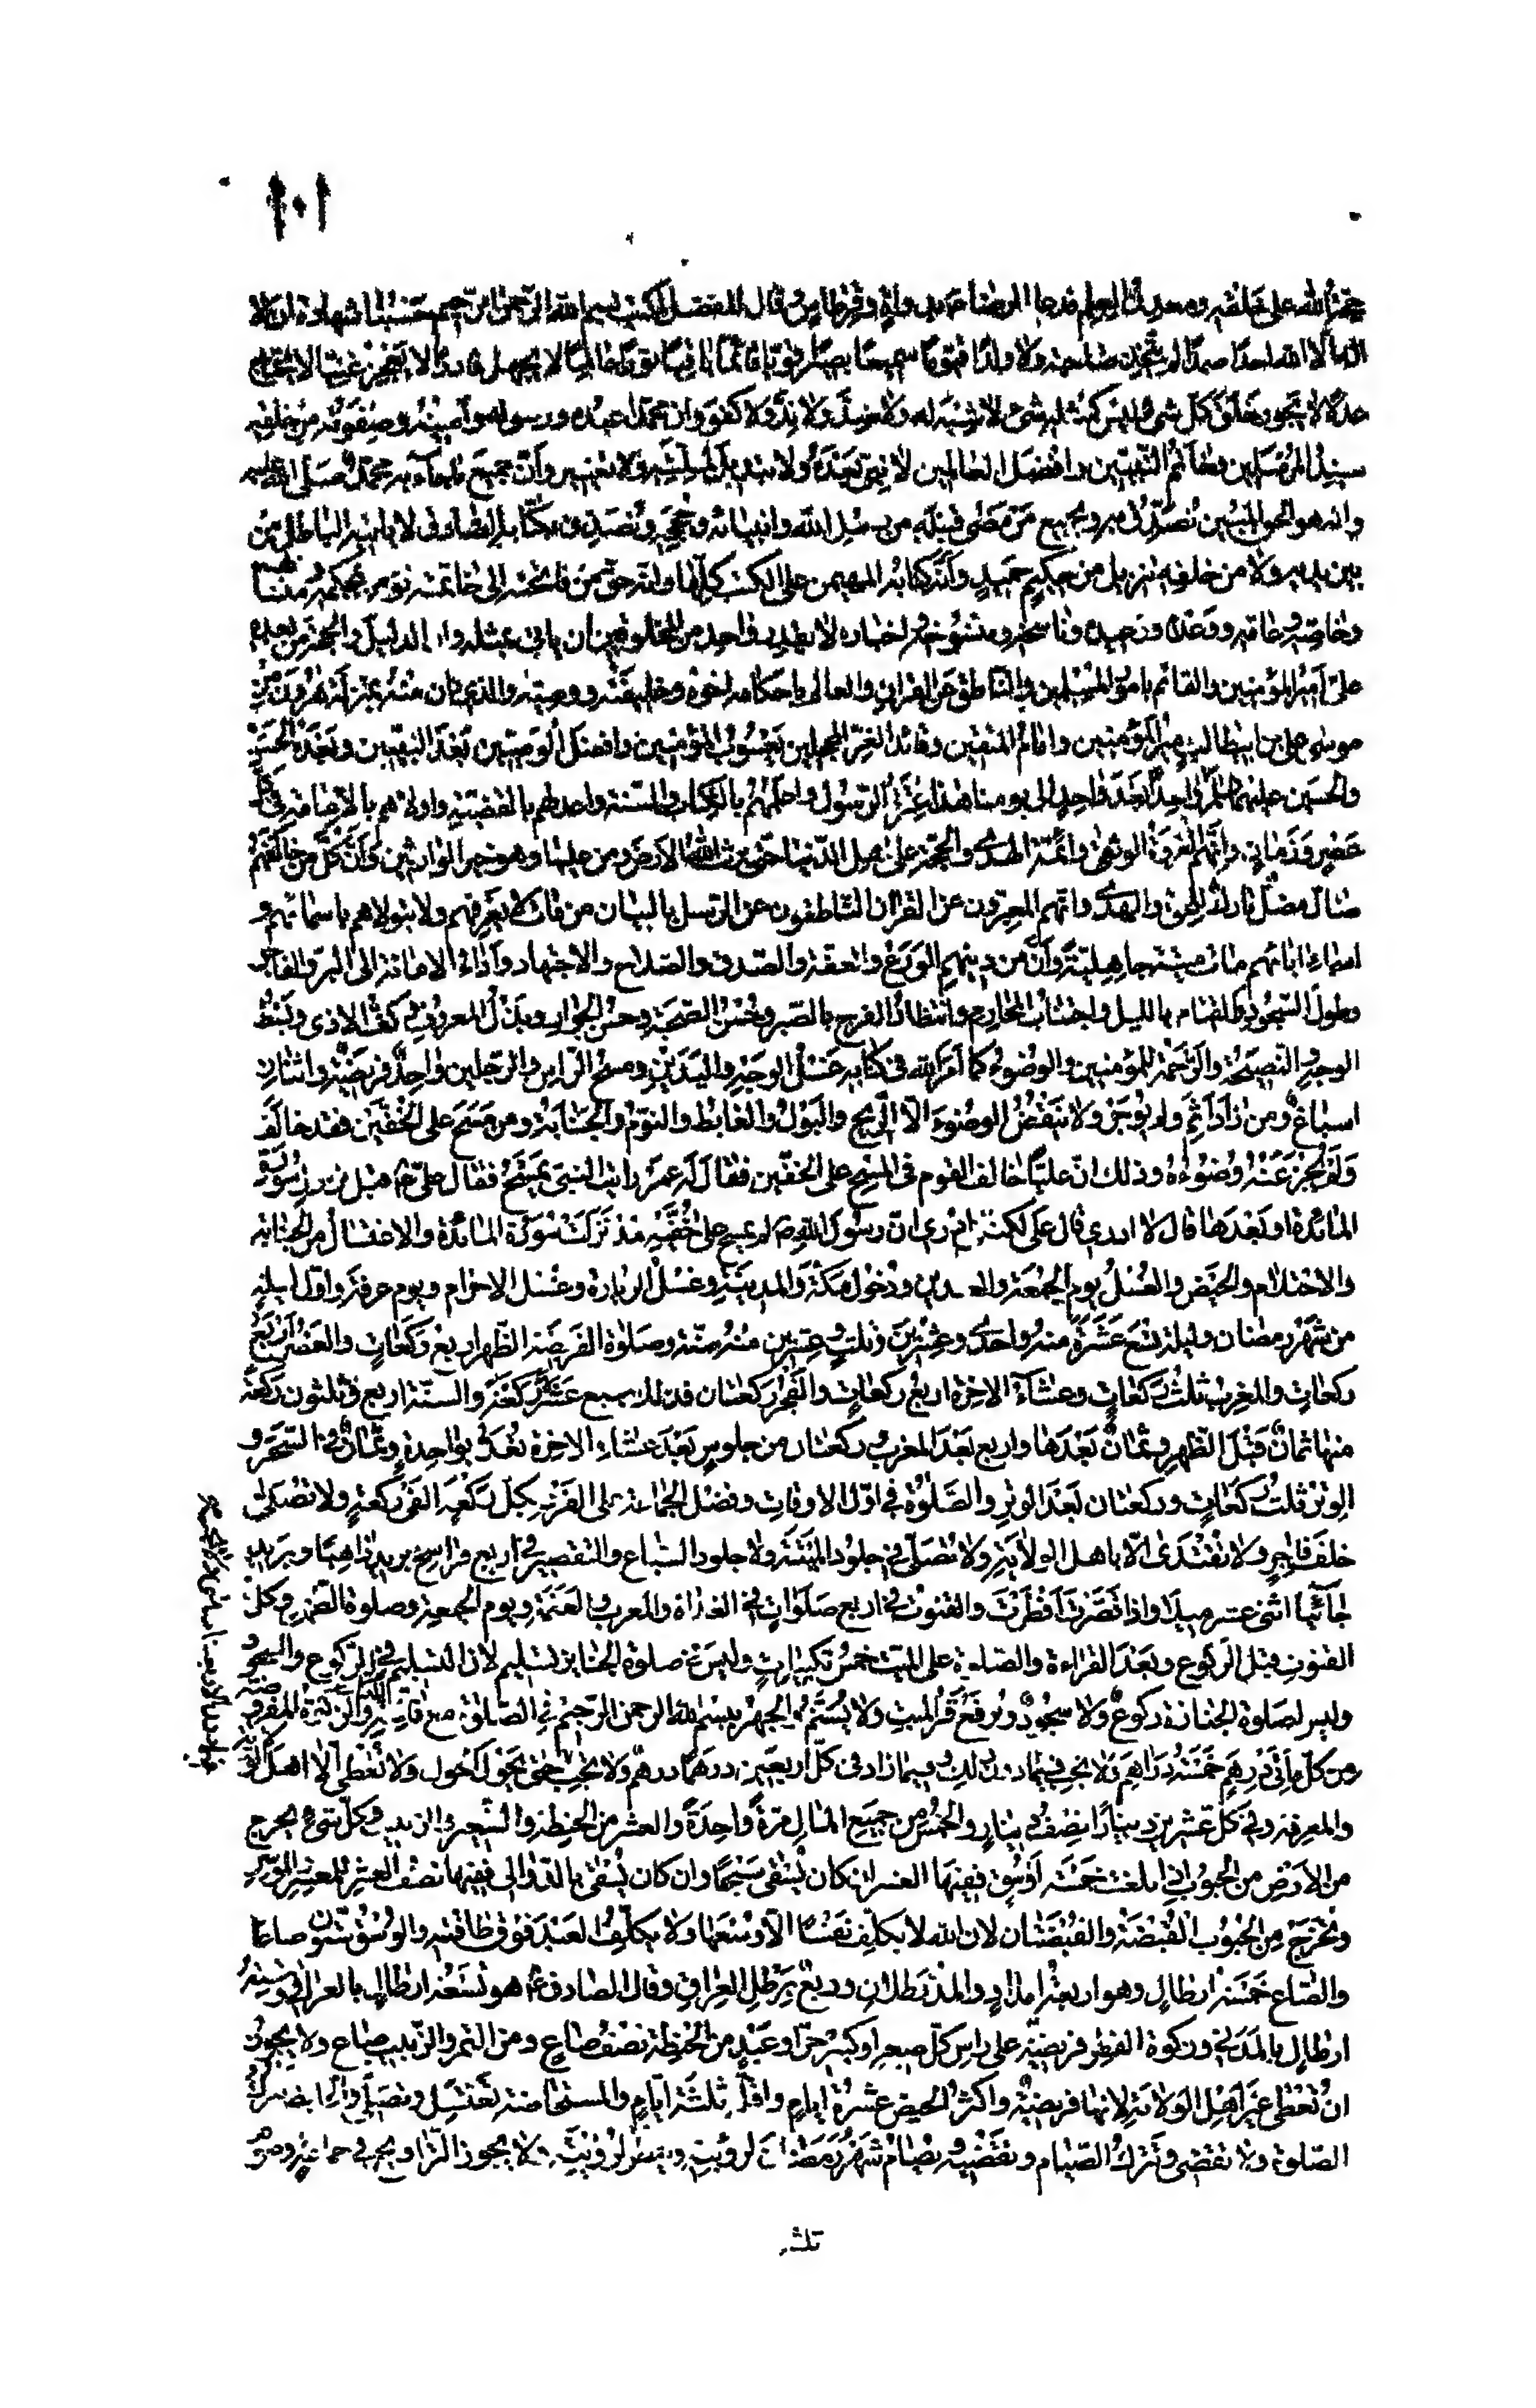 ١٠١
حجة الله على خلقه ومعدن العلم فدعا الرضا بدواة وقرطاس وقال للفضل اكتب بسم الله الرحمن الرحيم حسبنا شهادة ان لا
اله الا الله احدا صمدا لم يتخذ صاحبة ولا ولدا قيوما سميعا بصيرا قويا قائما باقيا نورا عالما لا يجهل قادرا لا يعجز غنيا لا يحتاج
عدلا لا يجور خلق كل شئ ليس كمثله شئ لا شبه له ولا ضد ولا ند ولا كفو وان محمدا عبده ورسوله وامينه وصفوته من خلقه
سيد المرسلين وخاتم النبيين وافضل العالمين لا نبي بعده ولا تبديل لملته ولا تغيير وان جميع ما جاء به محمد صلى الله عليه
وانه هو الحق المبين نصدق به وبجميع من مضى قبله من رسل الله وانبيائه وحججه ونصدق بكتابه الصادق لا ياتيه الباطل من
بين يديه ولا من خلفه تنزيل من حكيم حميد وانه كتابه المهيمن على الكتب كلها وانه حق من فاتحته الى خاتمته نؤمن بمحكمه ومتشابهه
وخاصه وعامه ووعده ووعيده وناسخه ومنسوخه واخباره لا يقدر واحد من المخلوقين ان ياتي بمثله وان الدليل والحجة من بعده
على امير المؤمنين والقائم بامور المسلمين والناطق عن القران والعالم باحكامه اخوه وخليفته ووصيه والذي كان منه بمنزلة هرون من
موسى علي بن ابيطالب امير المؤمنين وامام المتقين وقائد الغر المحجلين يعسوب المؤمنين وافضل الوصيين بعد النبيين وبعده الحسن
والحسين عليهما السلم واحدا بعد واحد الى يومنا هذا عترة الرسول واعلمهم بالكتاب والسنة واعدلهم بالقضية واولاهم بالامامة في كل
عصر وزمان وانهم العروة الوثقى وائمة الهدى والحجة على اهل الدنيا حتى يرث الله الارض ومن عليها وهو خير الوارثين وان كل من خالفهم
ضال مضل تارك للحق والهدى وانهم المعبرون عن القران الناطقون عن الرسل بالبيان من مات لا يعرفهم ولا يتولاهم باسمائهم و
اسماء ابائهم مات ميتة جاهلية وان من دينهم الورع والعفة والصدق والصلاح والاجتهاد واداء الامانة الى البر والفاجر
وطول السجود والقيام بالليل واجتناب المحارم وانتظار الفرج بالصبر وحسن الصحبة وحسن الجوار وبذل المعروف وكف الاذى وبسط
الوجه والنصيحة والرحمة للمؤمنين والوضوء كما امر الله في كتابه غسل الوجه واليدين ومسح الراس والرجلين واحد فريضة واثنان
اسباغ ومن زاد اثم ولم يوجر ولا ينقض الوضوء الا الريح والبول والغايط والنوم والجنابة ومن مسح على الخفين فقد خالف
ولم يجز عنه وضوءه وذلك ان عليا خالف القوم في المسح على الخفين فقال له عمر رايت النبي يمسح فقال علي ع قبل نزول سورة
المائدة او بعدها قال لا ادري قال علي لكنني ادري ان رسول الله ص لم يمسح على خفيه مذ نزلت سورة المائدة والاغتسال من الجنابة
والاحتلام والحيض والغسل يوم الجمعة والعيدين ودخول مكة والمدينة وغسل الزيارة وغسل الاحرام ويوم عرفة واول ليلة
من شهر رمضان وليلة تسع عشرة منه واحدى وعشرين وثلث وعشرين منه سنة وصلوة الفريضة الظهر اربع ركعات والعصر اربع
ركعات والمغرب ثلث ركعات وعشاء الاخرة اربع ركعات والفجر ركعتان فذلك سبع عشرة ركعة والسنة اربع وثلثون ركعة
منها ثمان قبل الظهر وثمان بعدها واربع بعد المغرب وركعتان من جلوس بعد عشاء الاخرة تعد بواحدة وثمان في السحر و
الوتر ثلث ركعات وركعتان بعد الوتر والصلوة في اول الاوقات وفضل الجماعة على الفرد بكل ركعة الفي ركعة ولا تصلى
خلف فاجر ولا تقتدى الا باهل الولاية ولا تصلى في جلود الميتة ولا جلود السباع والتقصير في اربع فراسخ بريد ذاهبا وبريد
جائيا اثني عشر ميلا واذا قصرت افطرت والقنوت في اربع صلوات في الغداة والمغرب والعتمة ويوم الجمعة وصلوة الظهر وكل
القنوت قبل الركوع وبعد القراءة والصلوة على الميت خمس تكبيرات وليس في صلوة الجنايز تسليم لان التسليم في الركوع والسجود
وليس لصلوة الجنازة ركوع ولا سجود ويرفع قبر الميت ولا يسنم والجهر ببسم الله الرحمن الرحيم في الصلوة مع فاتحة والزكوة المفروضة
من كل مأتي درهم خمسة دراهم ولا تجب فيما دون ذلك وفيما زاد في كل اربعين درهما درهم ولا تجب حتى يحول الحول ولا تعطى الا اهل الولاية
والمعرفة وفي كل عشرين دينارا نصف دينار والخمس من جميع المال مرة واحدة والعشر من الحنطة والشعير والزبيب وكل شئ يخرج
من الارض من الحبوب اذا بلغت خمسة اوسق ففيها العشر ان كان يسقى سيحا وان كان يسقى بالدوالي ففيها نصف العشر للمعسر والموسر
وتخرج من الحبوب القبضة والقبضتان لان الله لا يكلف نفسا الا وسعها ولا يكلف العبد فوق طاقته والوسق ستون صاعا
والصاع خمسة ارطال وهو اربعة امداد والمد رطلان وربع برطل العراقي وقال الصادق ع هو تسعة ارطال بالعراقي وستة
ارطال بالمدني وزكوة الفطر فريضة على راس كل صغير او كبير حر او عبد من الحنطة نصف صاع ومن التمر والزبيب صاع ولا يجوز
ان تعطى غير اهل الولاية لانها فريضة واكثر الحيض عشرة ايام واقله ثلثة ايام والمستحاضة تغتسل وتصلي والحايض تترك
الصلوة ولا تقضي وتترك الصيام وتقضيه ويصام شهر رمضان لرؤيته ويفطر لرؤيته ولا يجوز التراويح في جماعة وصوم